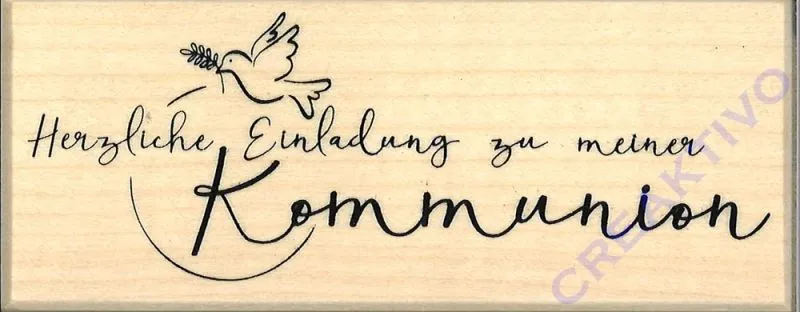 Herzliche Einladung zu meiner
Kommunion
CREAKTIVO